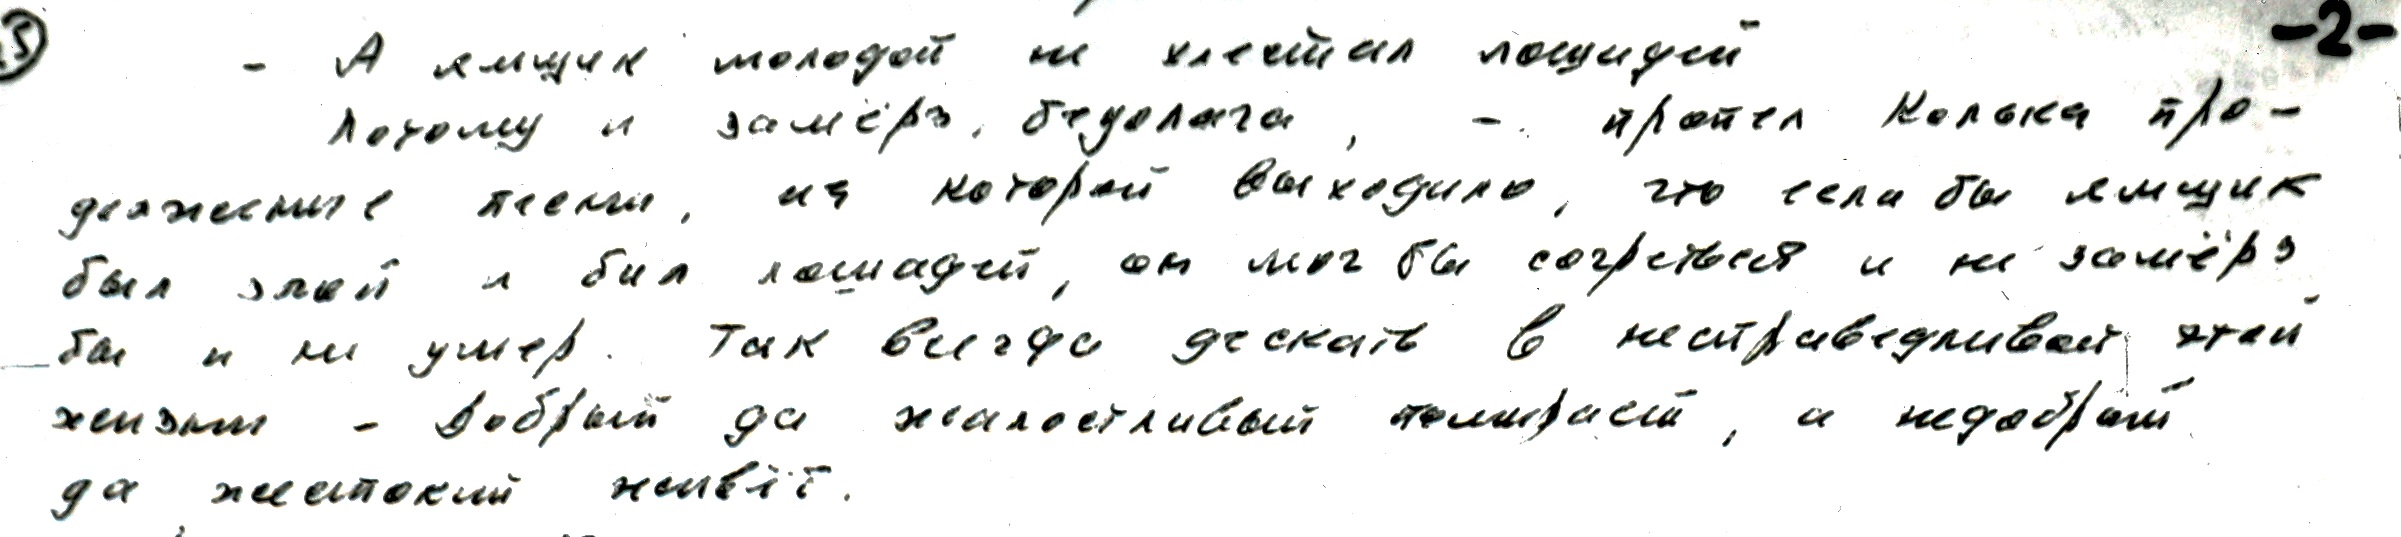 5 -2-
- А ямщик молодой не хлестал лошадей
Потому и замёрз, бедолага, - пропел Колька про-
должение песни, из которой выходило, что если бы ямщик
был злой и бил лошадей, он мог бы согреться и не замёрз
бы и не умер. Так всегда дескать в несправедливой этой
жизни - Добрый да жалостливый помирает, а недобрый
да жестокий живёт.